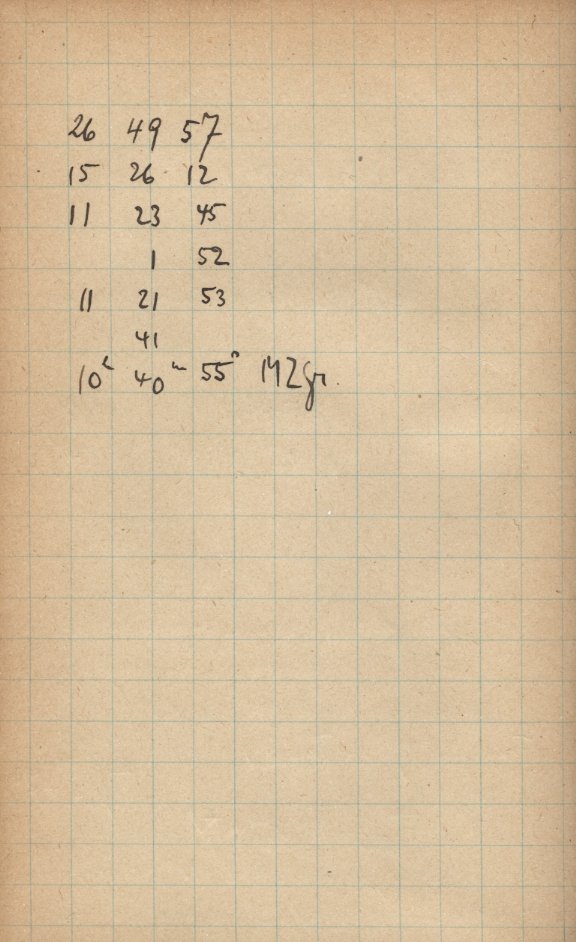 26 49 57
15 26 12
11 23 45
1 52
11 21 53
41
10h 40m 55s MZGr.